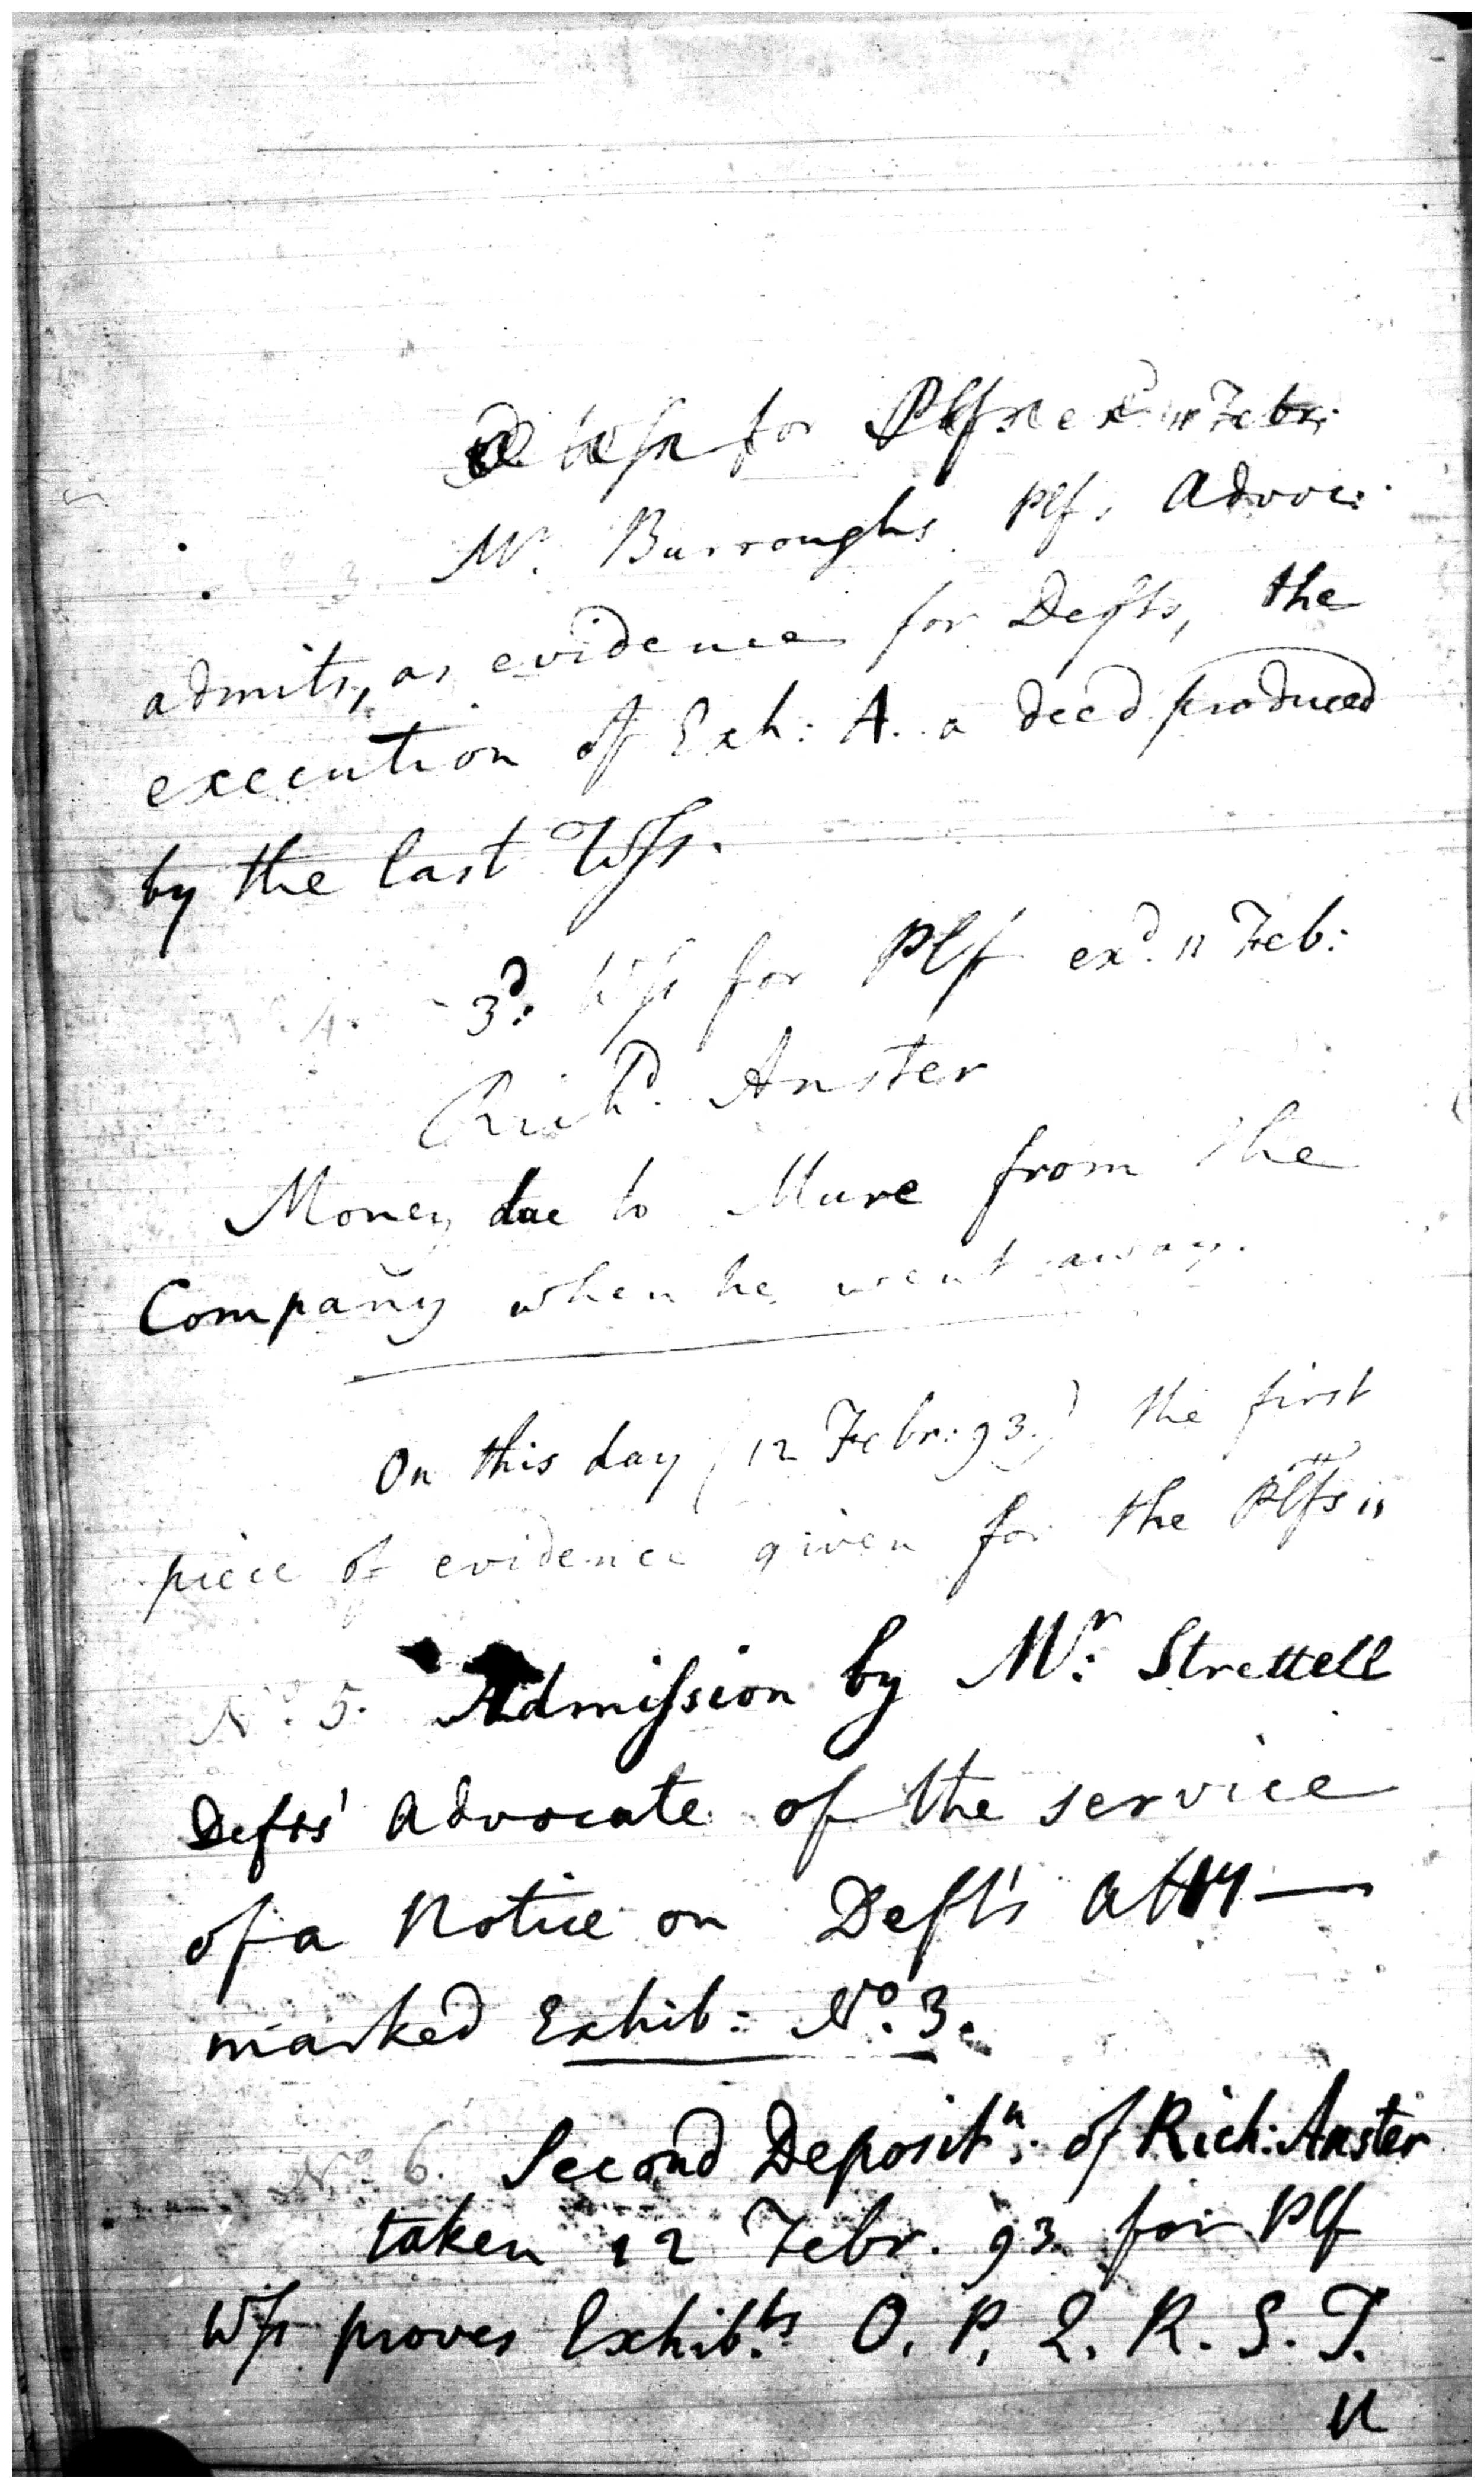 Wss for Plf ex.d 11 Febr:
No. 3. Mr. Burroughs Plf's Advoc:
admits, as evidence for Defts, the
execution of Exh: A. a deed produced
by the last Wss.
4. 3d: Wss for Plf ex.d 11 Feb:
Rich.d Anster
Money due to Mure from the
Company when he went away.
On this day (12 Febr: 93.) the first
piece of evidence given for the Plfs is
No. 5. Admission by Mr: Strettell
Defts' Advocate of the service
of a Notice on Deft's Atty —
marked Exhib: No. 3.
No. 6. Second Deposit.n: of Rich: Anster
taken 12 Febr. 93 for Plf
Wss proves Exhib.ts O. P. Q. R. S. T.
U